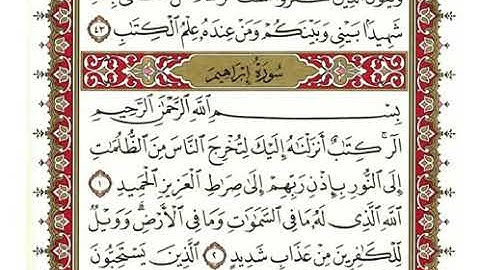 شَهِيدًۢا بَيْنِي وَبَيْنَكُمْ وَمَنْ عِندَهُۥ عِلْمُ ٱلْكِتَٰبِ ٤٣
سُورَةُ إِبْرَاهِيمَ
بِسْمِ ٱللَّهِ ٱلرَّحْمَٰنِ ٱلرَّحِيمِ
الٓر ۚ كِتَٰبٌ أَنزَلْنَٰهُ إِلَيْكَ لِتُخْرِجَ ٱلنَّاسَ مِنَ ٱلظُّلُمَٰتِ
إِلَى ٱلنُّورِ بِإِذْنِ رَبِّهِمْ إِلَىٰ صِرَٰطِ ٱلْعَزِيزِ ٱلْحَمِيدِ ١
ٱللَّهِ ٱلَّذِي لَهُۥ مَا فِي ٱلسَّمَٰوَٰتِ وَمَا فِي ٱلْأَرْضِ ۗ وَوَيْلٌ
لِّلْكَٰفِرِينَ مِنْ عَذَابٍ شَدِيدٍ ٢ ٱلَّذِينَ يَسْتَحِبُّونَ